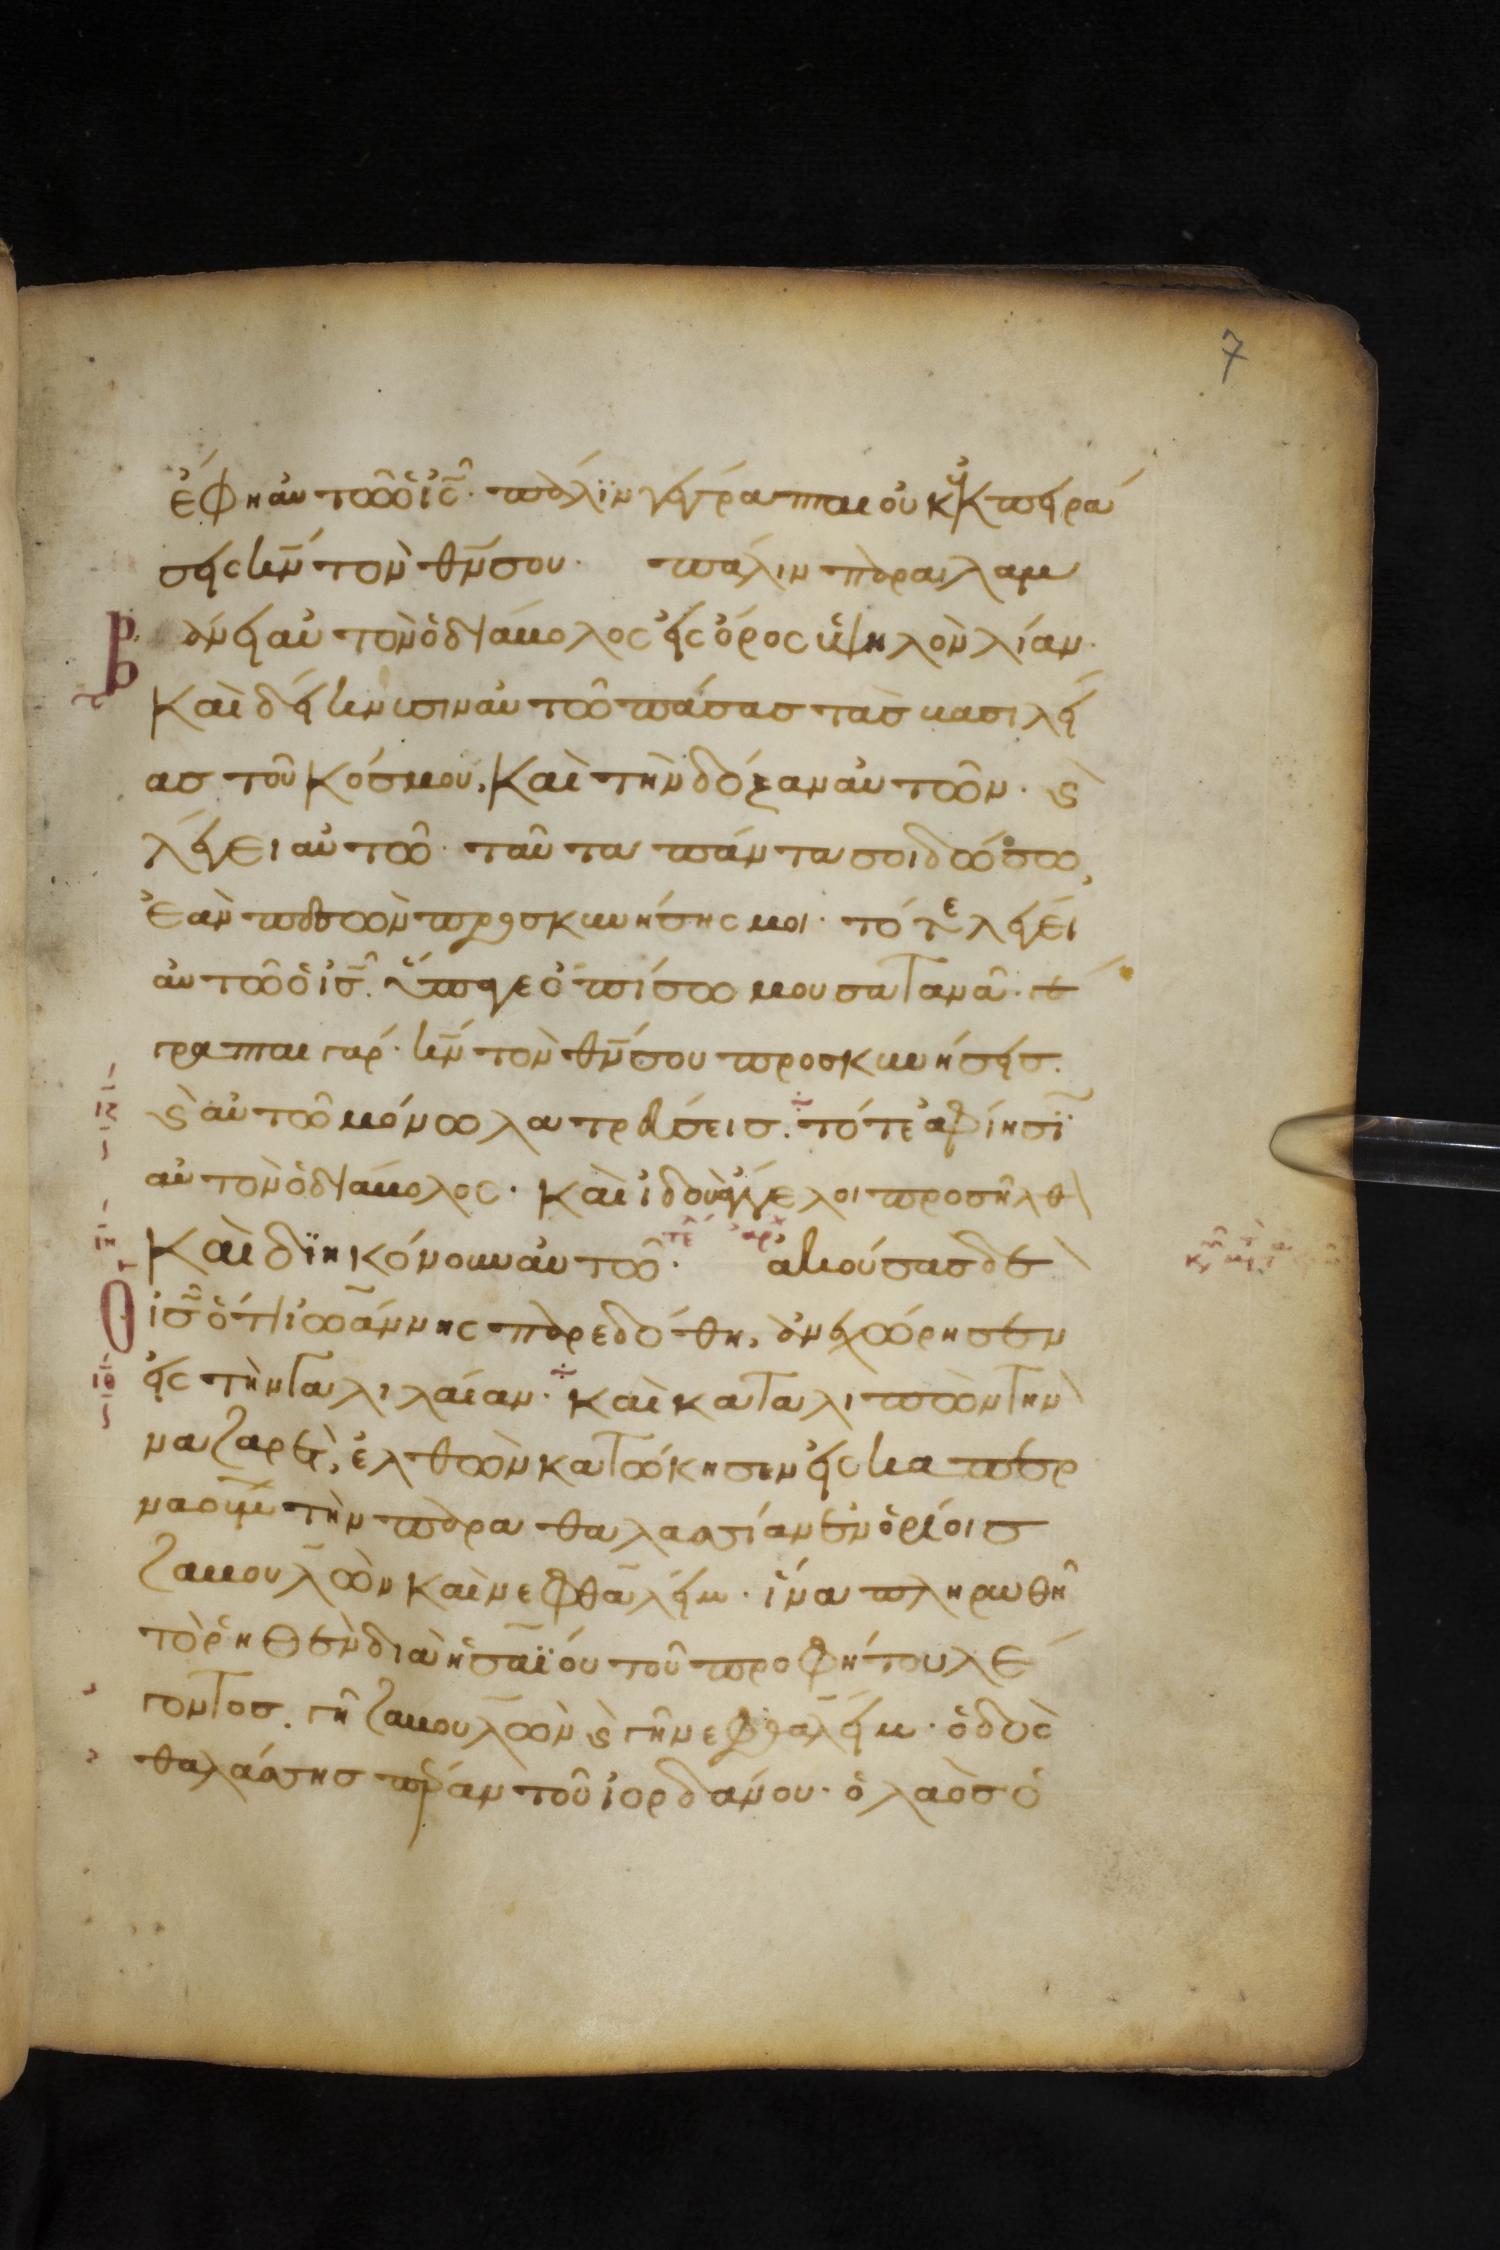 7
ἔφη αὐτῶ ὁ ἰς̅· πάλϊν γέγραπται οὐκ ἐκπειρά
σεις κν̅ τὸν θν̅ σου· πάλιν παραλαμ
βάνει αὐτὸν ὁ διάβολος εἰς ὄρος ὑψηλὸν λίαν·
καὶ δείκνυσιν αὐτῶ πάσας τὰς βασιλεί
ας τοῦ κόσμου, καὶ τὴν δόξαν αὐτῶν· ϛ̀
λέγει αὐτῶ· ταῦτα πάντα σοι δώσω,
ἐὰν πεσὼν προσκυνήσης μοι· τότε λέγει
αὐτῶ ὁ ἰς̅· ὕπαγε ὀπίσω μου σατανᾶ· γέ
γραπται γάρ· κν̅ τὸν θν̅ σου προσκυνήσεις·
ιζ ϛ̀ αὐτῶ μόνω λατρεύσεις· τότε ἀφίησϊ
αὐτὸν ὁ διάβολος· καὶ ἰδοὺ ἄγγελοι προσῆλθ
ιη καὶ δϊηκόνουν αὐτῶ· τε αρχ ἀκούσας δὲ
ὁ ἰς̅ ὅτι ἰωάννης παρεδόθη, ἀνεχώρησεν
ιθ εἰς τὴν γαλιλαίαν· καὶ καταλιπὼν τὴν
ναζαρὲτ, ἐλθὼν κατώκησεν εἰς καπερ
ναοὺμ τὴν παραθαλασσίαν ἐν ὁρίοις
ζαβουλὼν καὶ νεφθαλείμ· ἵνα πληρωθῆ
τὸ ῥηθὲν διὰ ἡσαΐου τοῦ προφήτου λέ
γοντος· γῆ ζαβουλὼν ϛ̀ γῆ νεφθαλείμ· ὁδὸς
θαλάσσης πέραν τοῦ ἰορδάνου· ὁ λαὸς ὁ